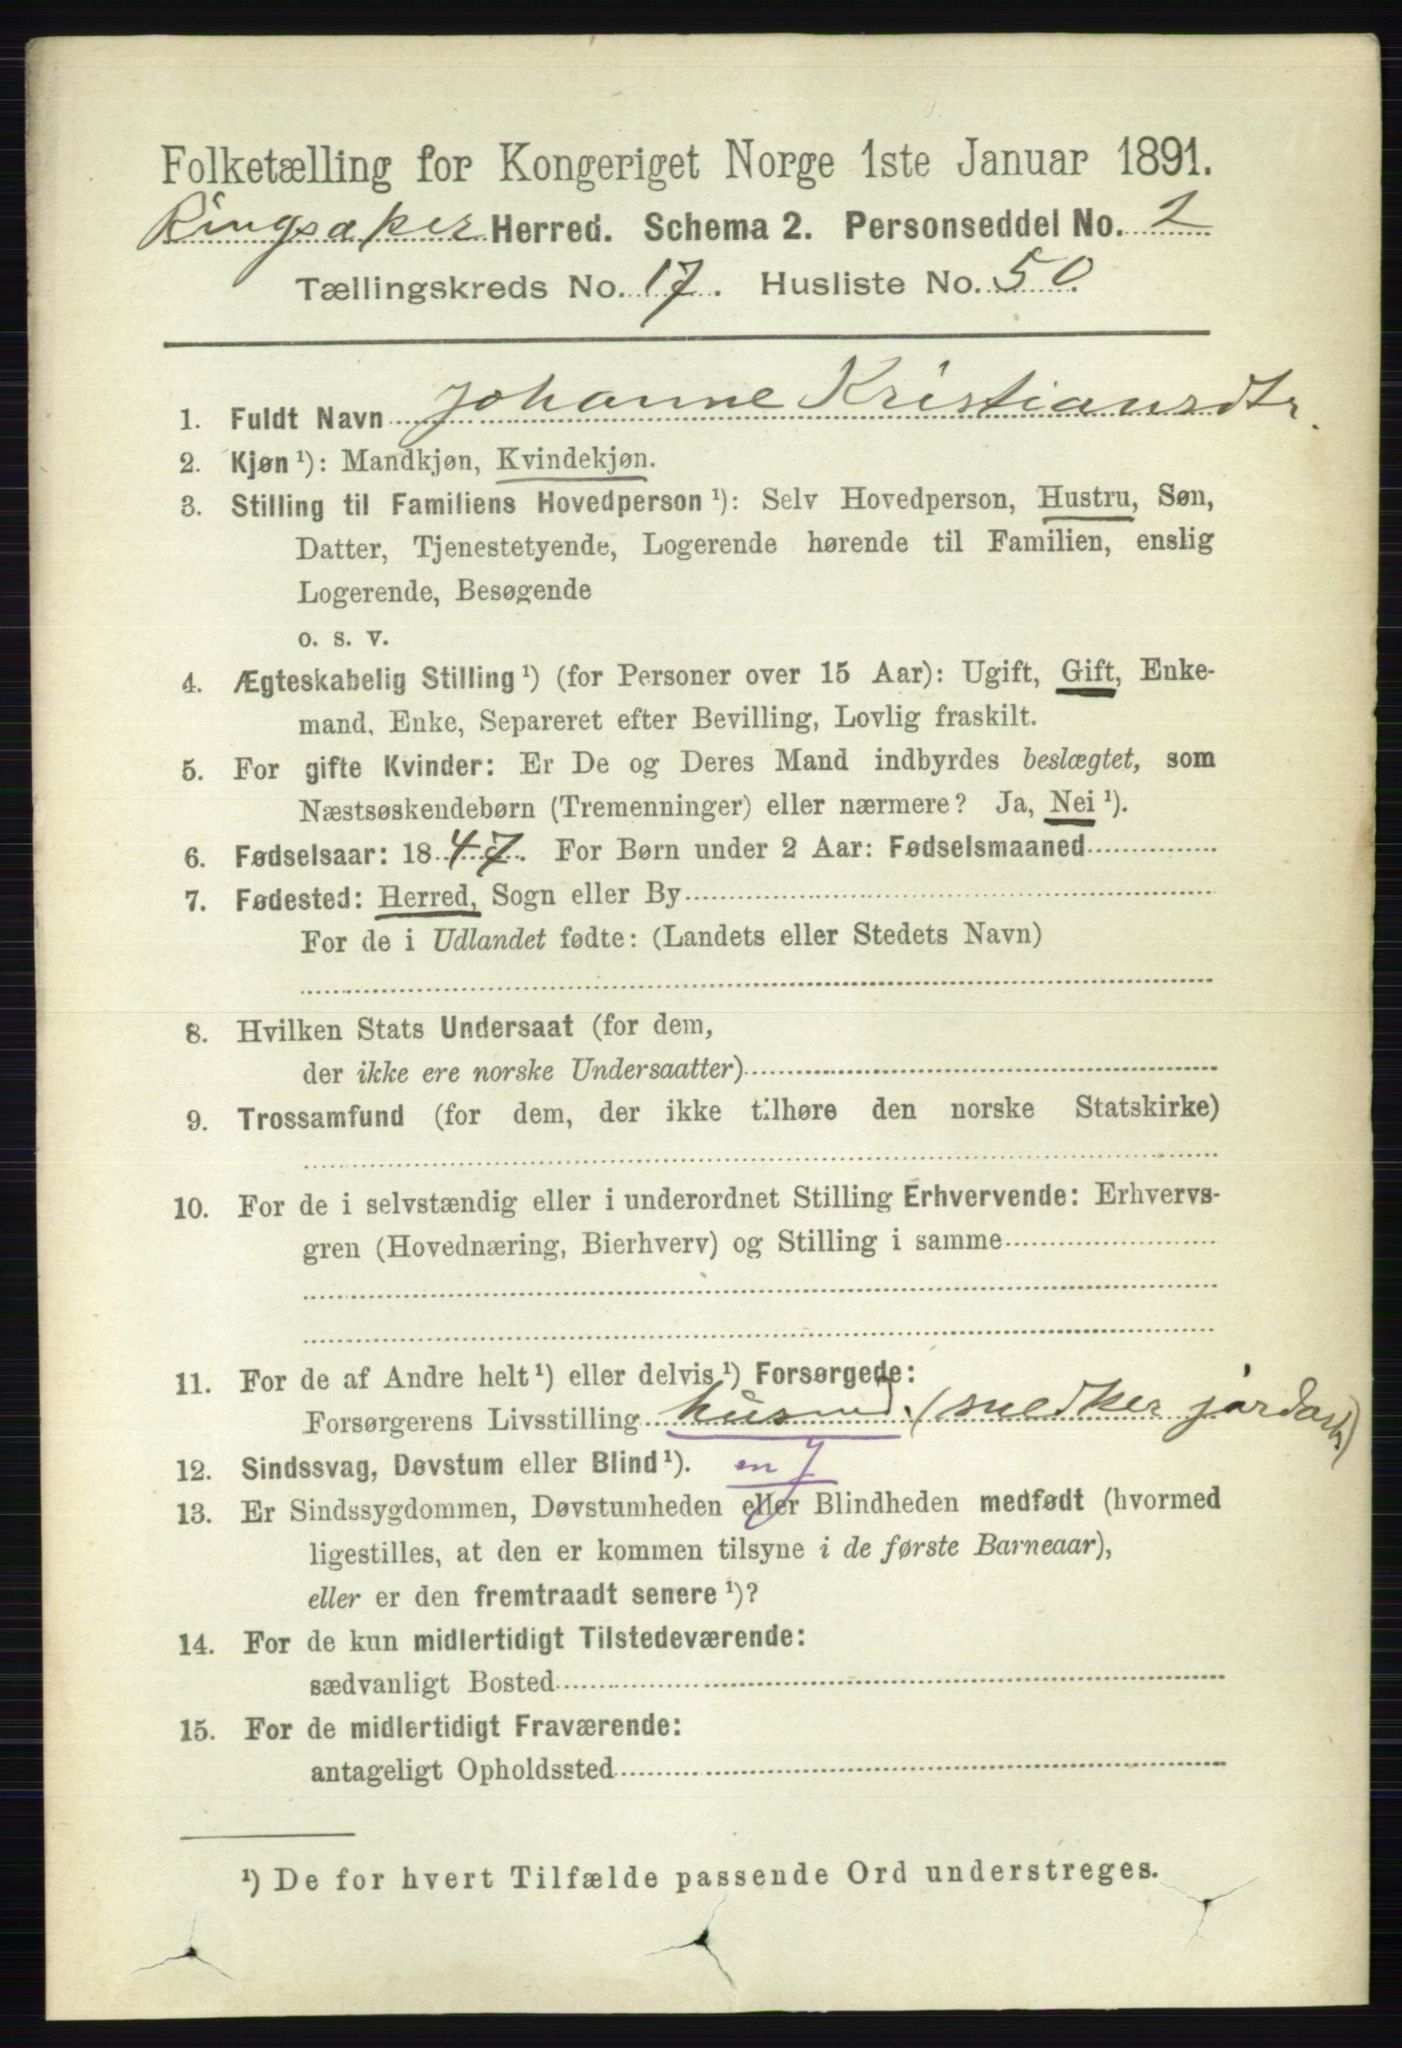 Folketælling for Kongeriget Norge 1ste Januar 1891.
Ringsaker Herred. Schema 2. Personseddel No. 2
Tællingskreds No. 17. Husliste No. 50.
1. Fuldt Navn Johanne Kristiansdtr.
2. Kjøn¹): Mandkjøn, Kvindekjøn.
3. Stilling til Familiens Hovedperson¹): Selv Hovedperson, Hustru, Søn,
Datter, Tjenestetyende, Logerende hørende til Familien, enslig
Logerende, Besøgende
o. s. v.
4. Ægteskabelig Stilling¹) (for Personer over 15 Aar): Ugift, Gift, Enke-
mand, Enke, Separeret efter Bevilling, Lovlig fraskilt.
5. For gifte Kvinder: Er De og Deres Mand indbyrdes beslægtet, som
Næstsøskendebørn (Tremenninger) eller nærmere? Ja, Nei¹).
6. Fødselsaar: 1847. For Børn under 2 Aar: Fødselsmaaned
7. Fødested: Herred, Sogn eller By
For de i Udlandet fødte: (Landets eller Stedets Navn)
8. Hvilken Stats Undersaat (for dem,
der ikke ere norske Undersaatter)
9. Trossamfund (for dem, der ikke tilhøre den norske Statskirke)
10. For de i selvstændig eller i underordnet Stilling Erhvervende: Erhvervs-
gren (Hovednæring, Bierhverv) og Stilling i samme
11. For de af Andre helt¹) eller delvis¹) Forsørgede:
Forsørgerens Livsstilling husmd. (snedker jordarb)
12. Sindssvag, Døvstum eller Blind¹).
13. Er Sindssygdommen, Døvstumheden eller Blindheden medfødt (hvormed
ligestilles, at den er kommen tilsyne i de første Barneaar),
eller er den fremtraadt senere¹)?
14. For de kun midlertidigt Tilstedeværende:
sædvanligt Bosted
15. For de midlertidigt Fraværende:
antageligt Opholdssted
¹) De for hvert Tilfælde passende Ord understreges.